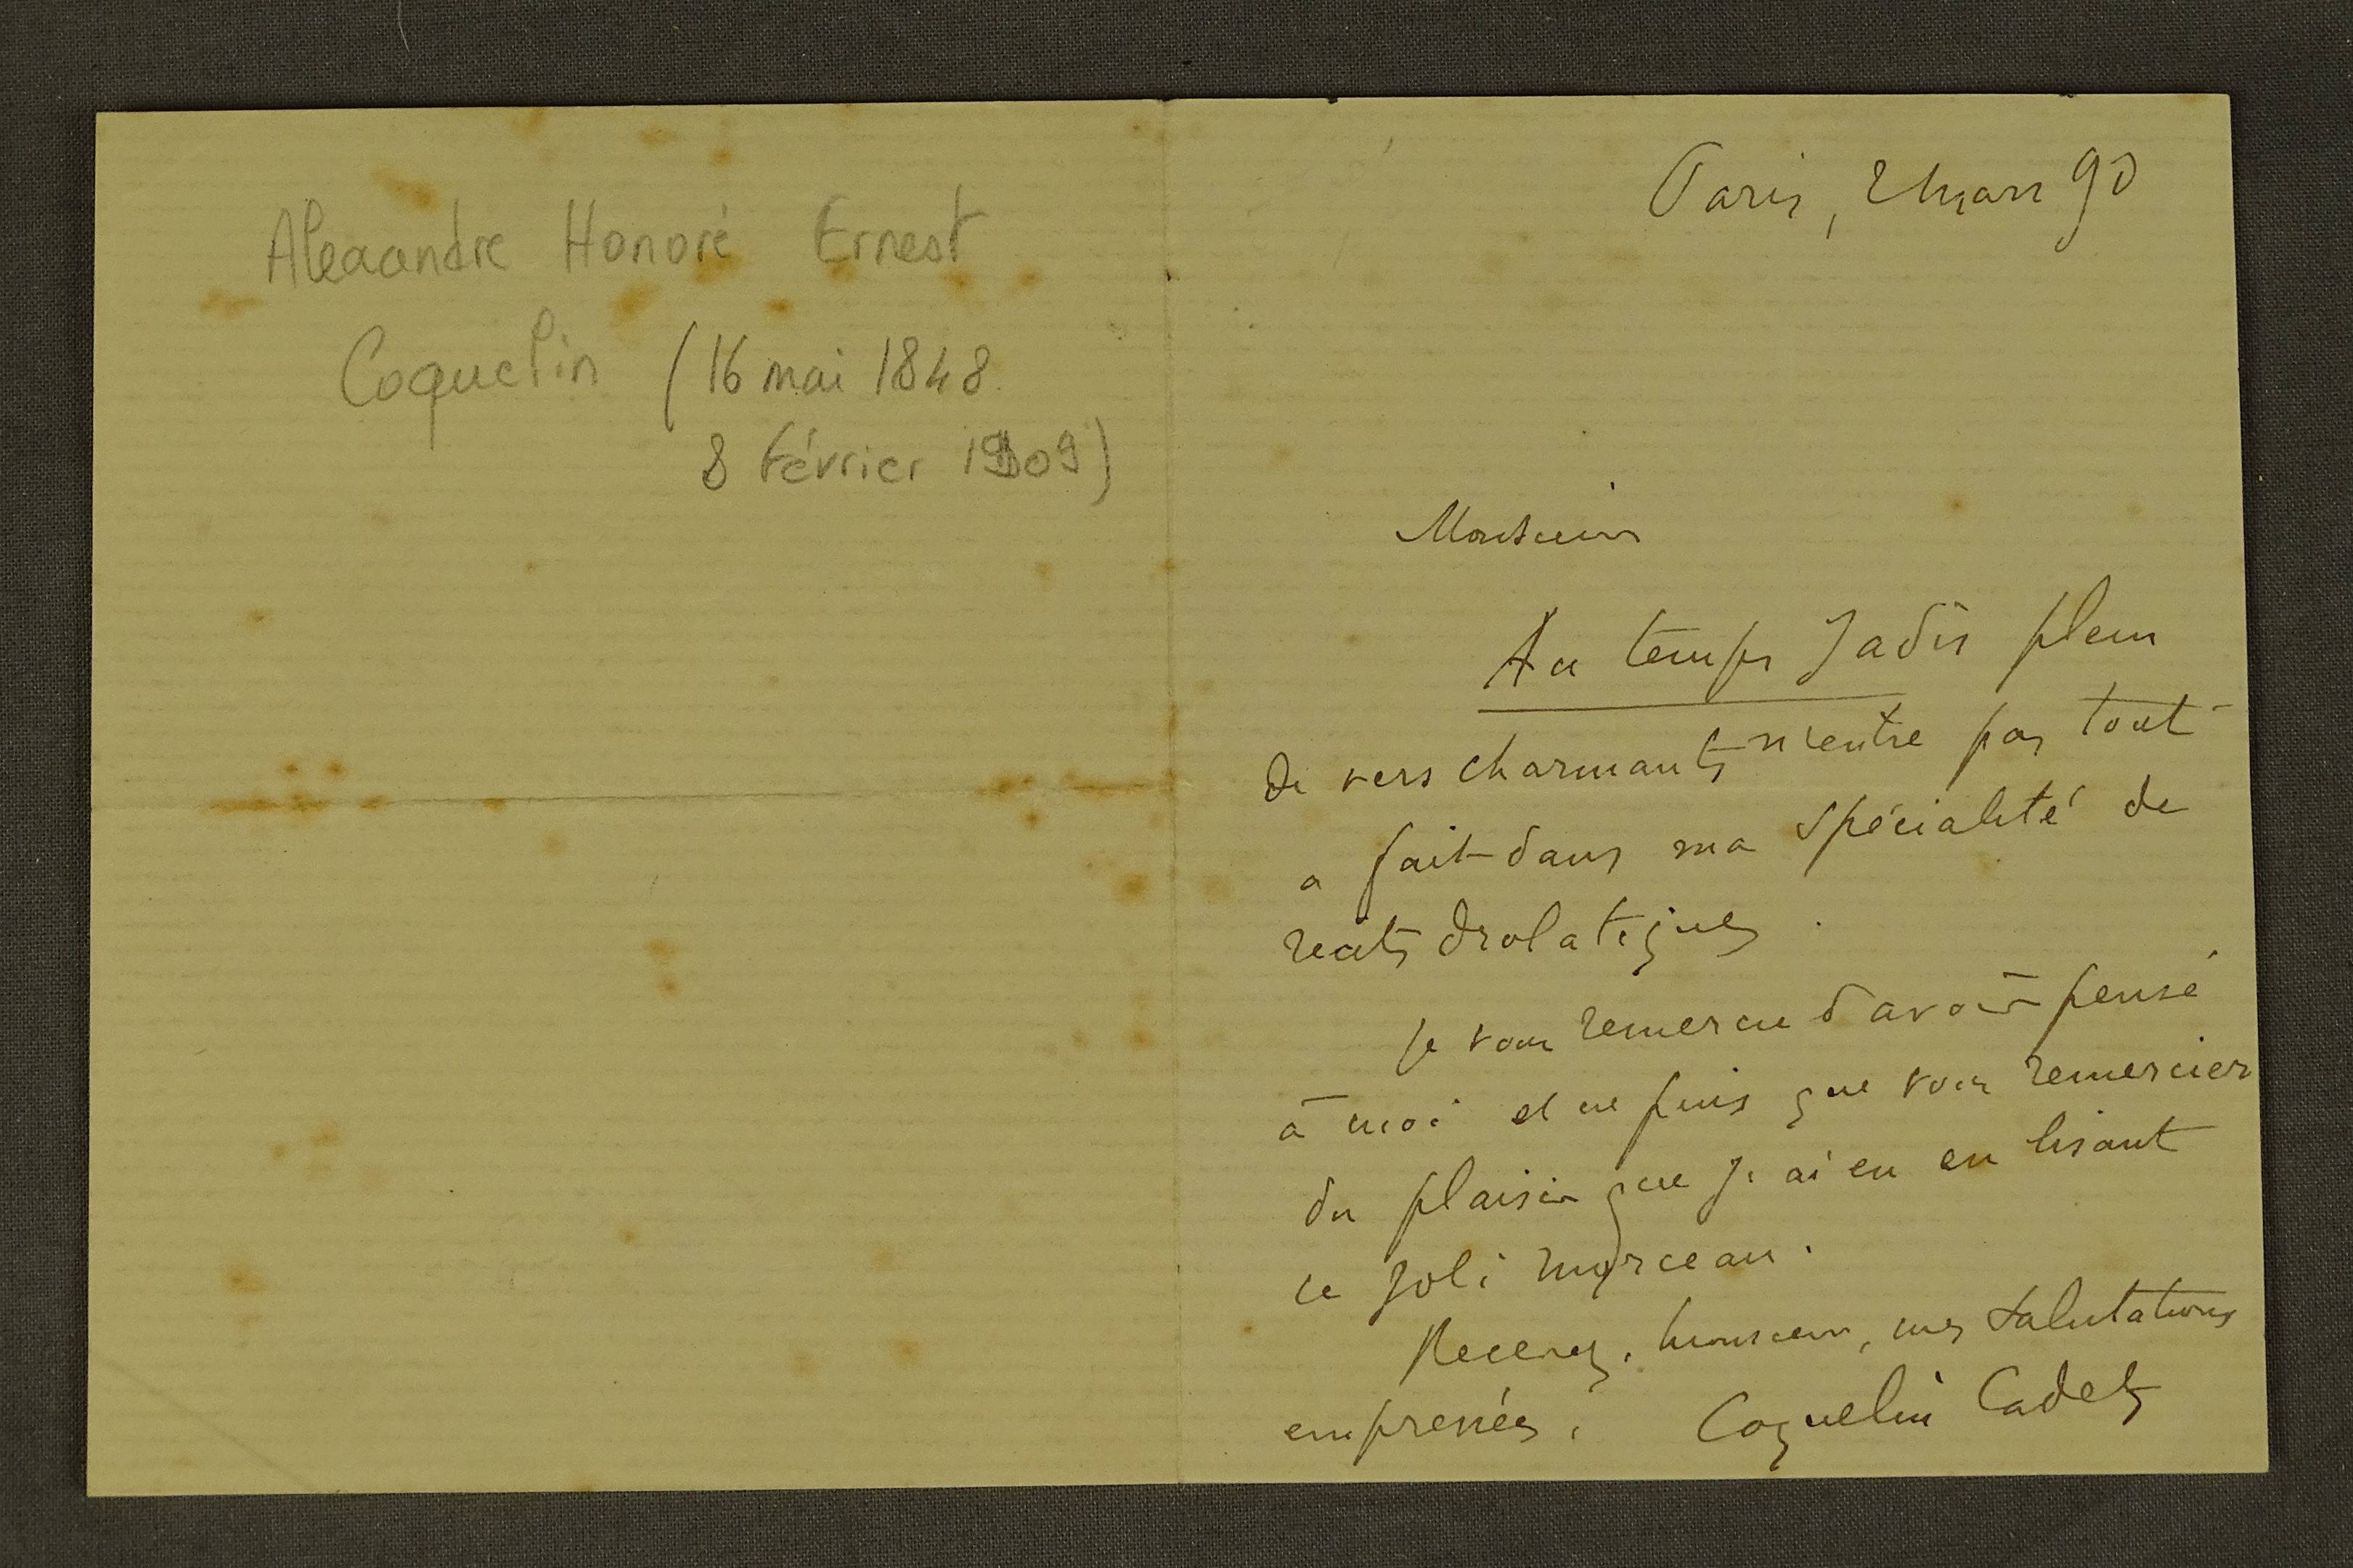 Alexandre Honoré Ernest
Coquelin (16 mai 1848
8 février 1909)
Paris, 2 mars 90
Monsieur
Au temps Jadis plein
de vers charmants n'entre pas tout
a fait dans ma spécialité de
recits drolatiques.
Je vous remercie d'avoir pensé
à moi et ne puis que vous remercier
du plaisir que j'ai eu en lisant
ce joli morceau.
Recevez, monsieur, mes salutations
empressées. Coquelin Cadet